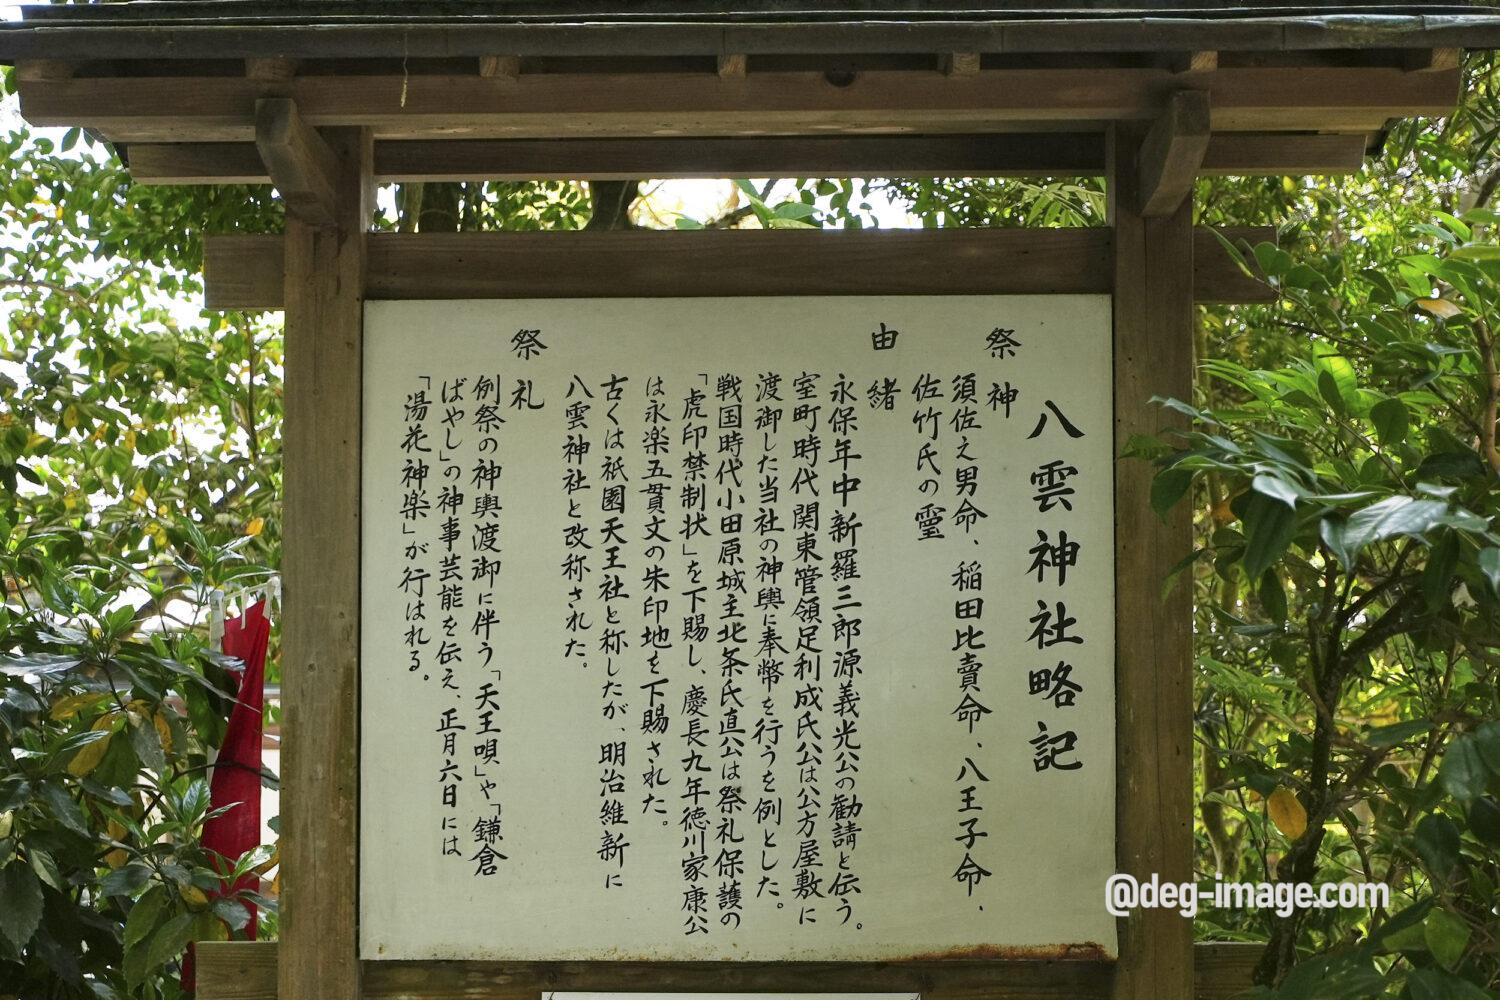 八雲神社略記
祭神
須佐之男命、稲田比賣命、八王子命、
佐竹氏の霊
由緒
永保年中新羅三郎源義光公の勧請と伝う。
室町時代関東管領足利成氏公は公方屋敷に
渡御した当社の神輿に奉幣を行うを例とした。
戦国時代小田原城主北条氏直公は祭礼保護の
「虎印禁制状」を下賜し、慶長九年徳川家康公
は永楽五貫文の朱印地を下賜された。
古くは祇園天王社と称したが、明治維新に
八雲神社と改称された。
祭礼
例祭の神輿渡御に伴う「天王唄」や「鎌倉
ばやし」の神事芸能を伝え、正月六日には
「湯花神楽」が行はれる。
@deg-image.com